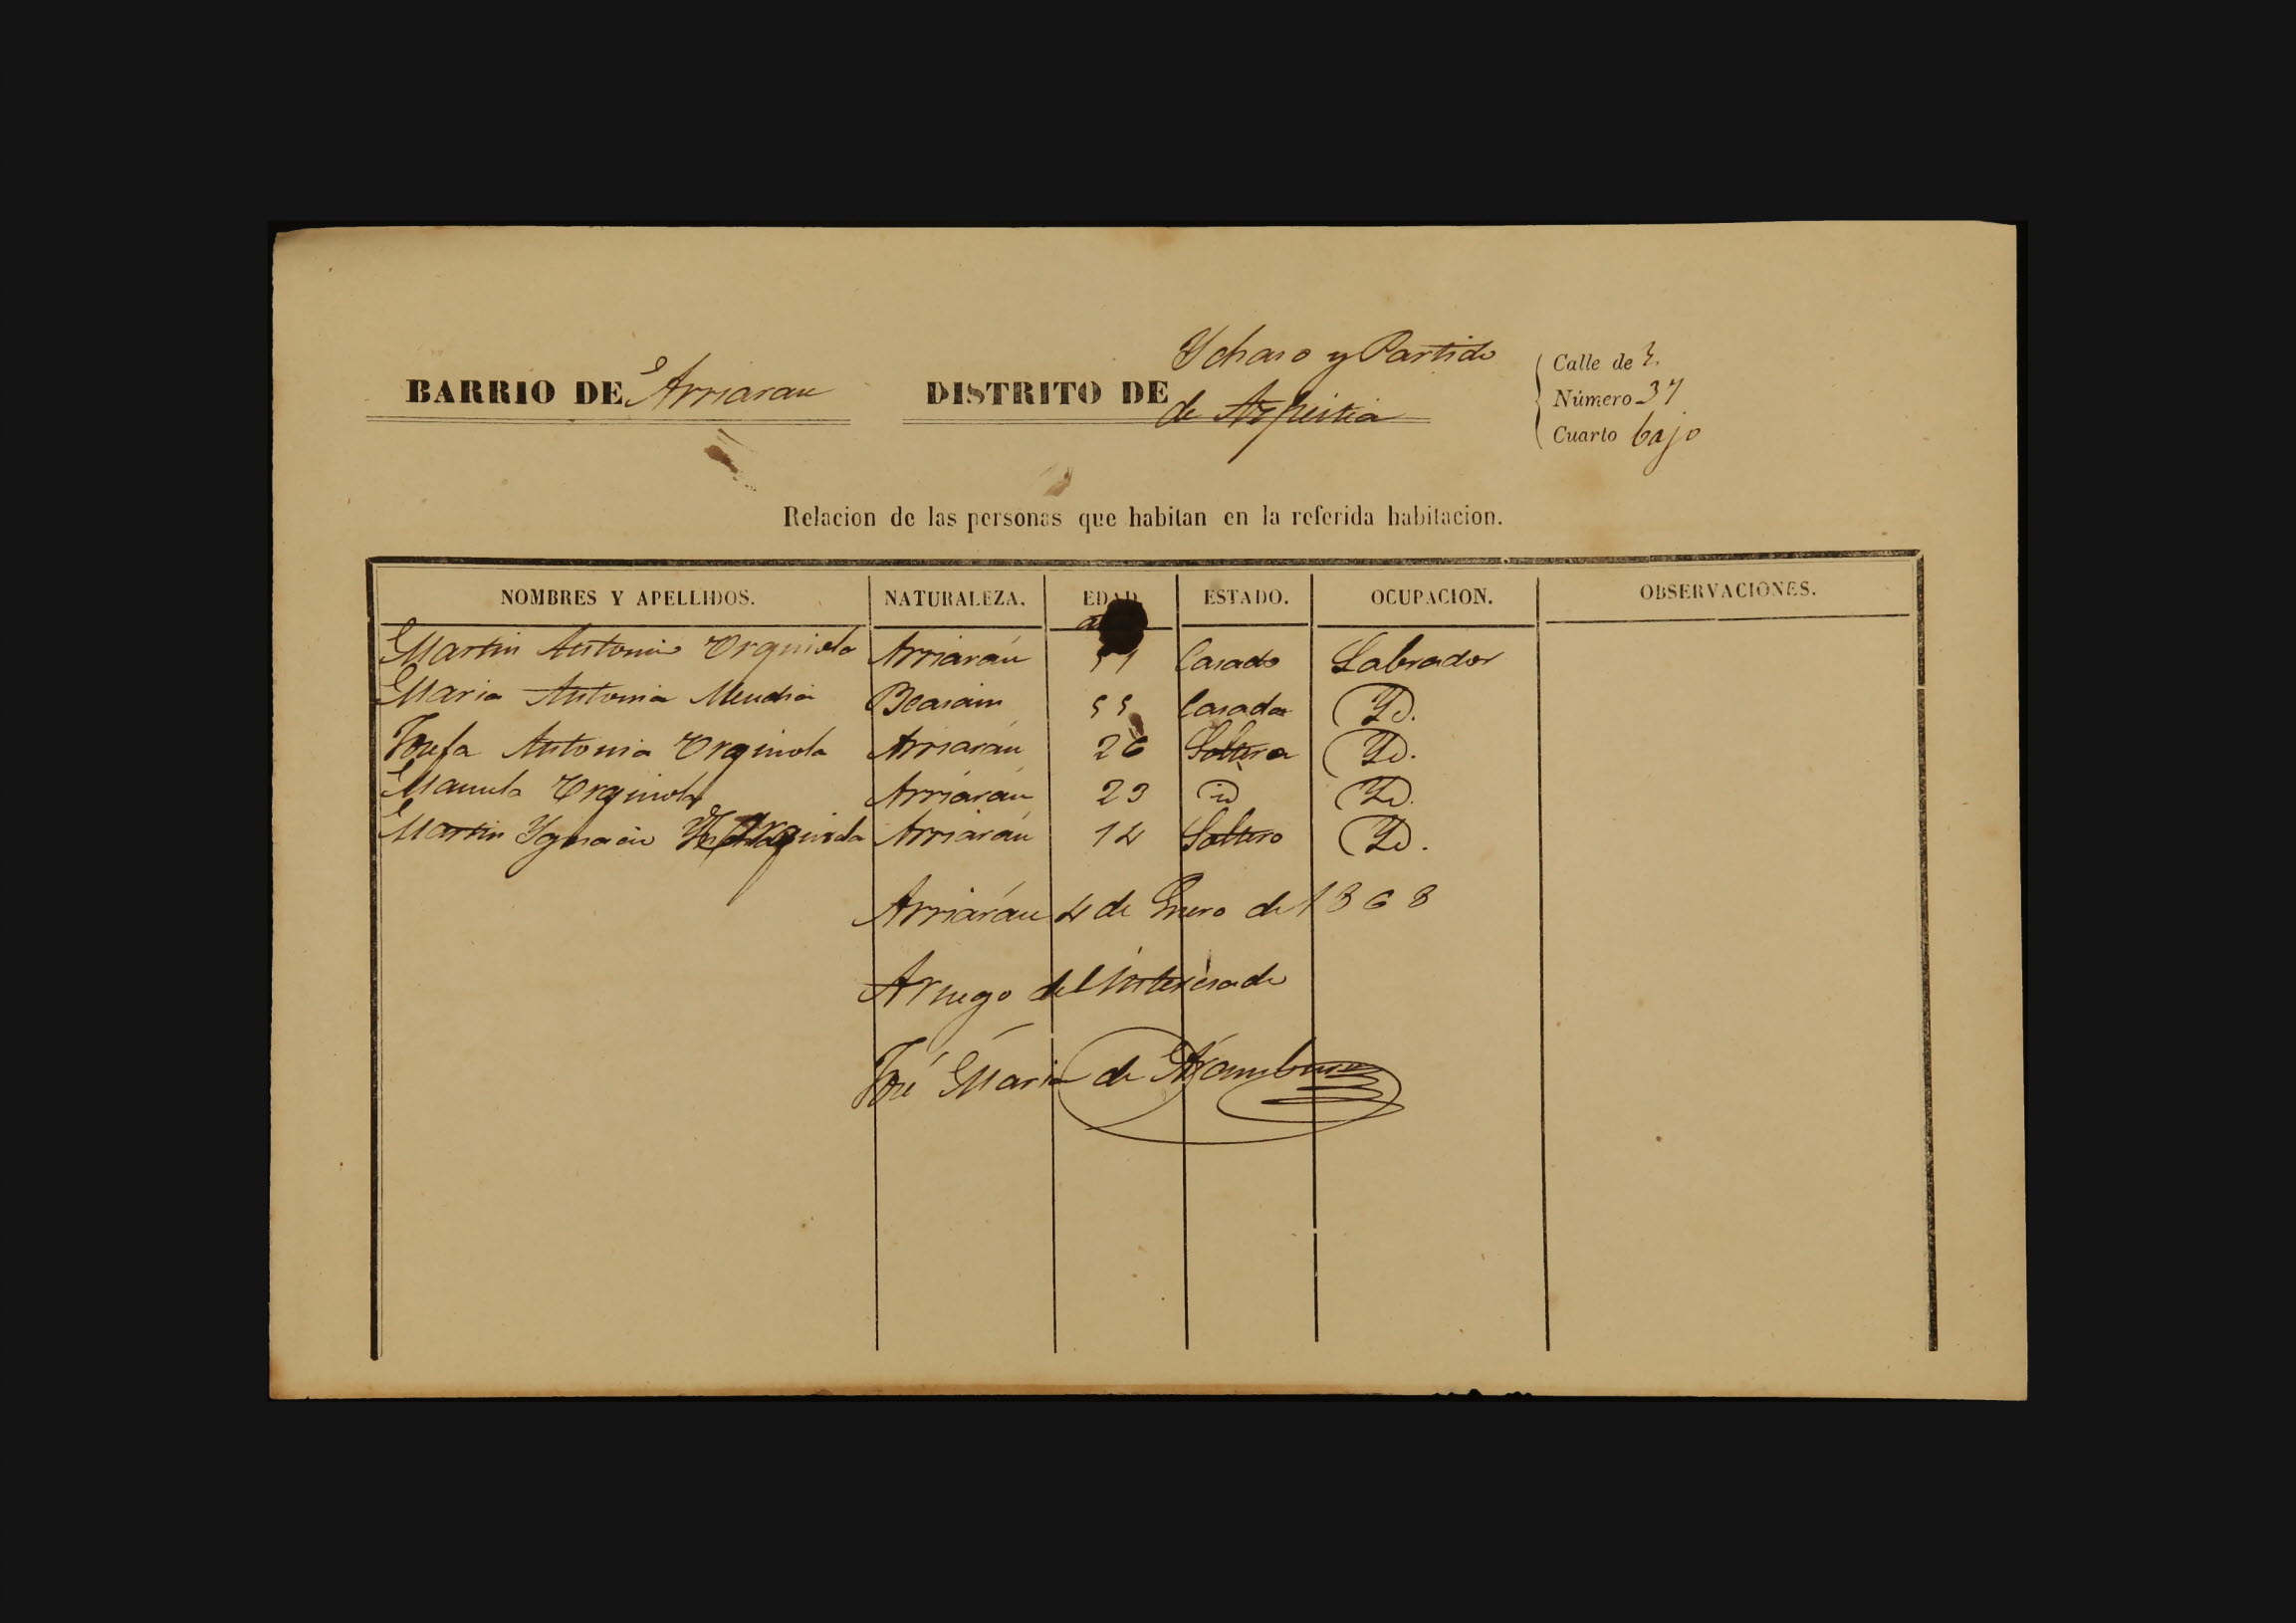 BARRIO DE Arriaran DISTRITO DE Ycharo y Partido
de Azpeitia
Calle de 3.
Número 37
Cuarto bajo
Relacion de las personas que habitan en la referida habitacion.
NOMBRES Y APELLIDOS. NATURALEZA. EDAD ESTADO. OCUPACION. OBSERVACIONES.
Martin Antonio Orquiola Arriarán Casado Labrador
Maria Antonia Mendia Beasain 55 Casada Yd.
Josefa Antonia Orquiola Arriarán 26 Soltera Yd.
Manuela Orquiola Arriarán 23 id Yd.
Martin Ygnacio Orquiola Arriarán 14 Soltero Yd.
Arriarán 4 de Enero de 1868
A ruego del interesado
José Maria de Aramburu